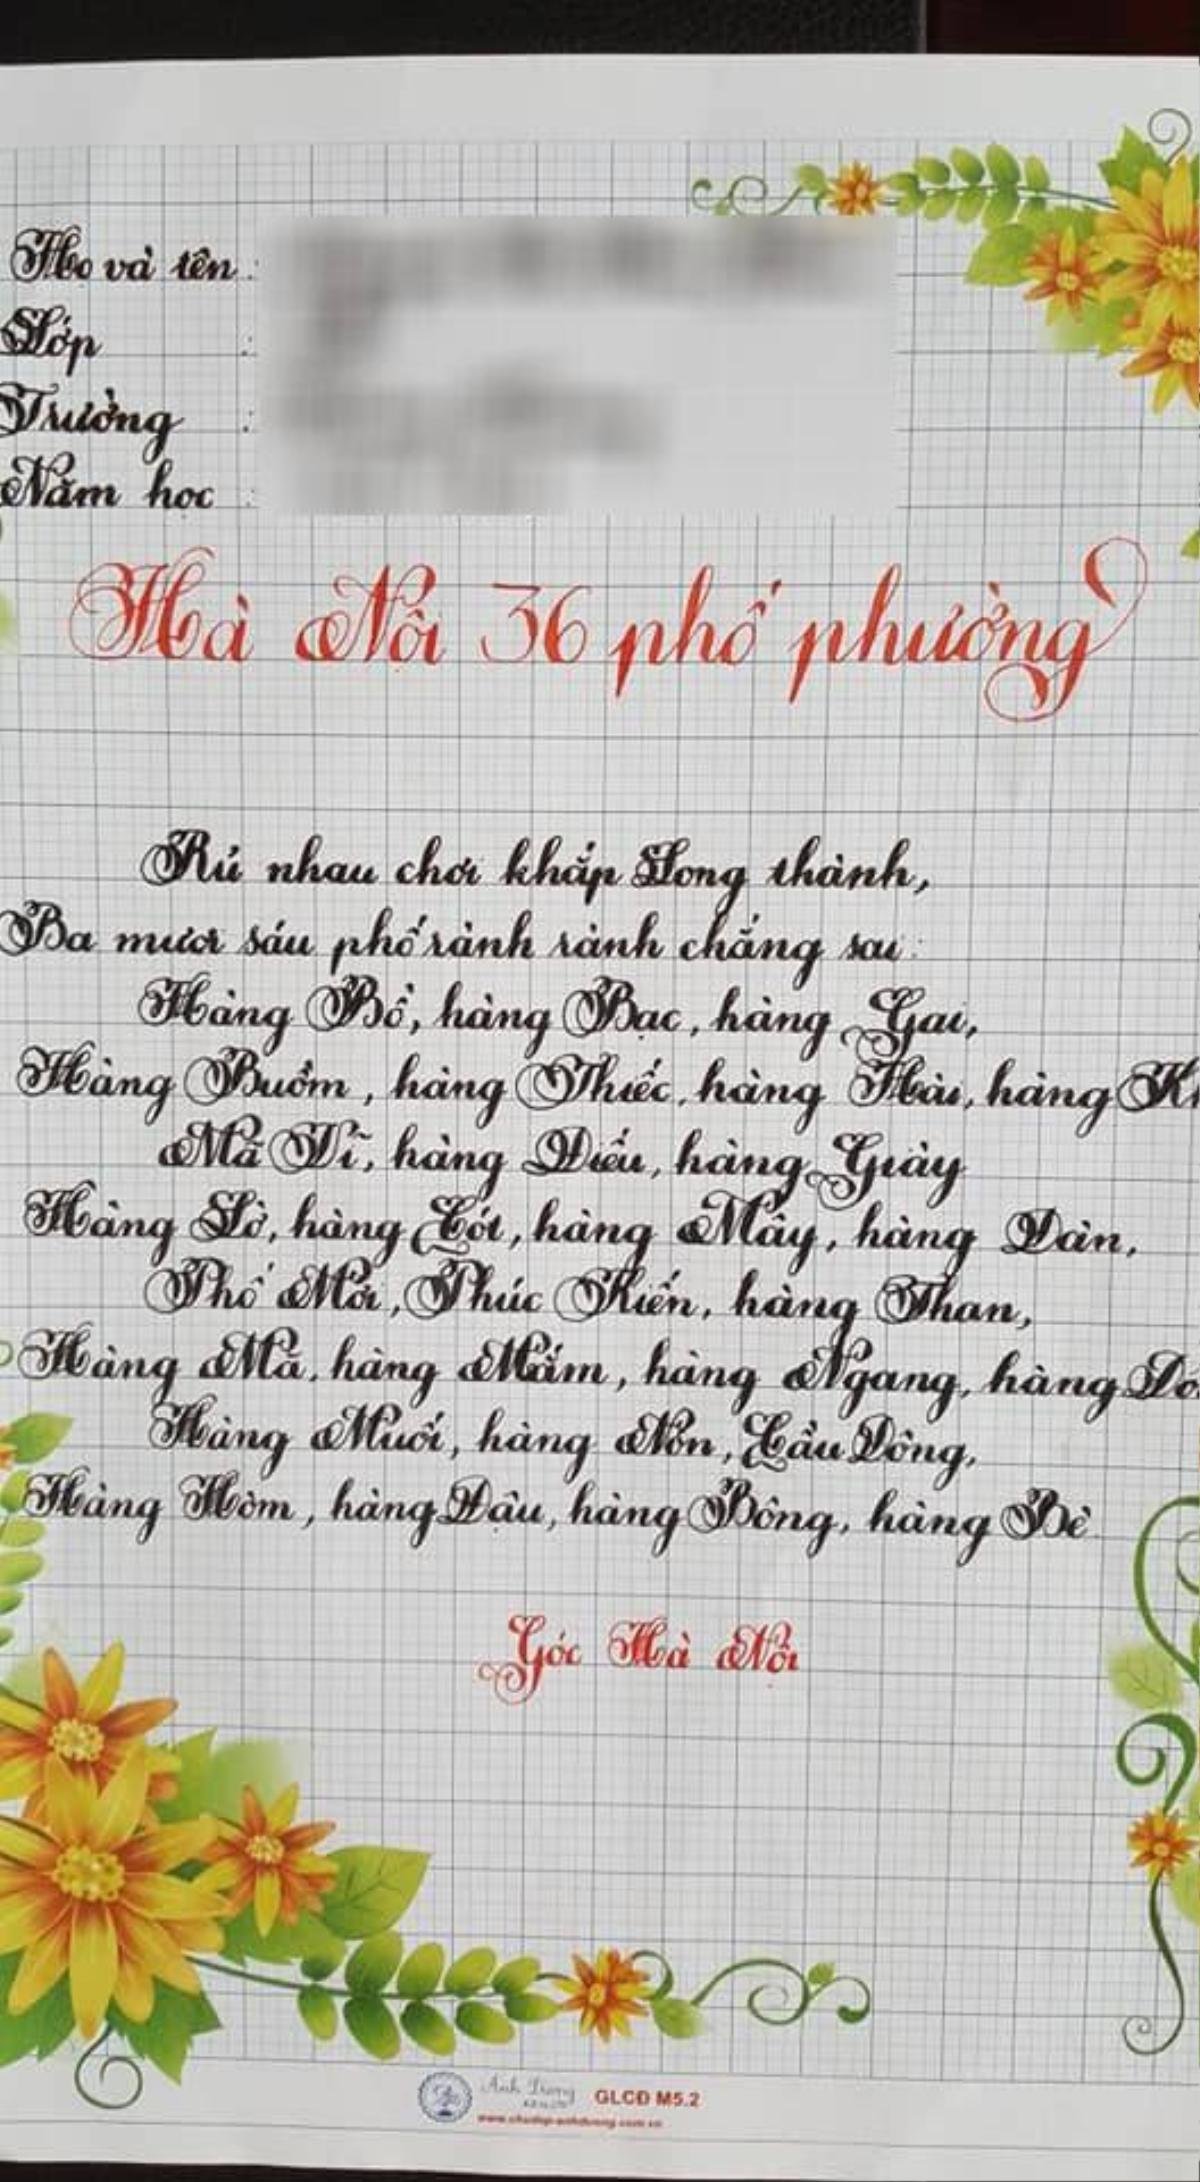 Họ và tên :
Lớp :
Trường :
Năm học :
Hà Nội 36 phố phường
Rủ nhau chơi khắp Long thành,
Ba mươi sáu phố rành rành chẳng sai:
Hàng Bồ, hàng Bạc, hàng Gai,
Hàng Buồm, hàng Thiếc, hàng Hài, hàng
Mã Vĩ, hàng Điếu, hàng Giày
Hàng Lờ, hàng Cót, hàng Mây, hàng Đàn,
Phố Mới, Phúc Kiến, hàng Than,
Hàng Mã, hàng Mắm, hàng Ngang, hàng
Hàng Muối, hàng Nón, Cầu Đông,
Hàng Hòm, hàng Đậu, hàng Bông, hàng Bè
Góc Hà Nội
Ánh Dương GLCĐ M5.2
www.chudep-anhduong.com.vn